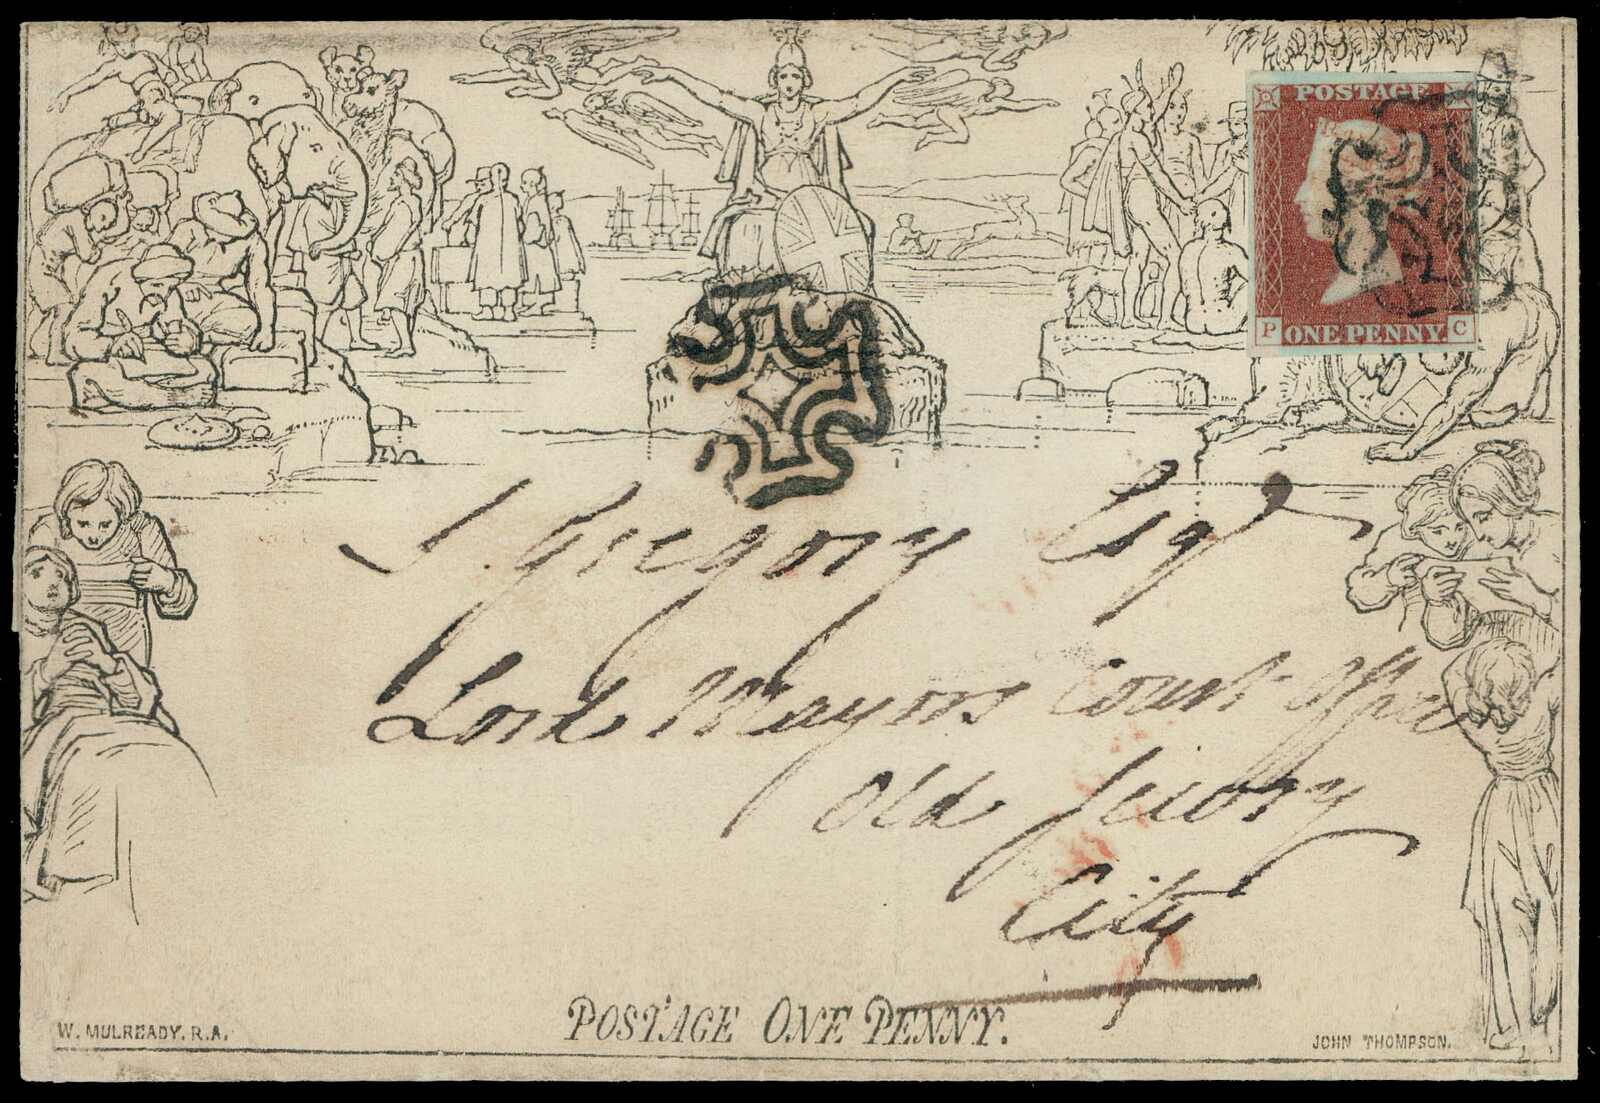 POSTAGE
P ONE PENNY. C
S. Gregory Esqr
Lord Mayors Court Office
Old Jewry
City
POSTAGE ONE PENNY.
W. MULREADY. R.A.
JOHN THOMPSON.